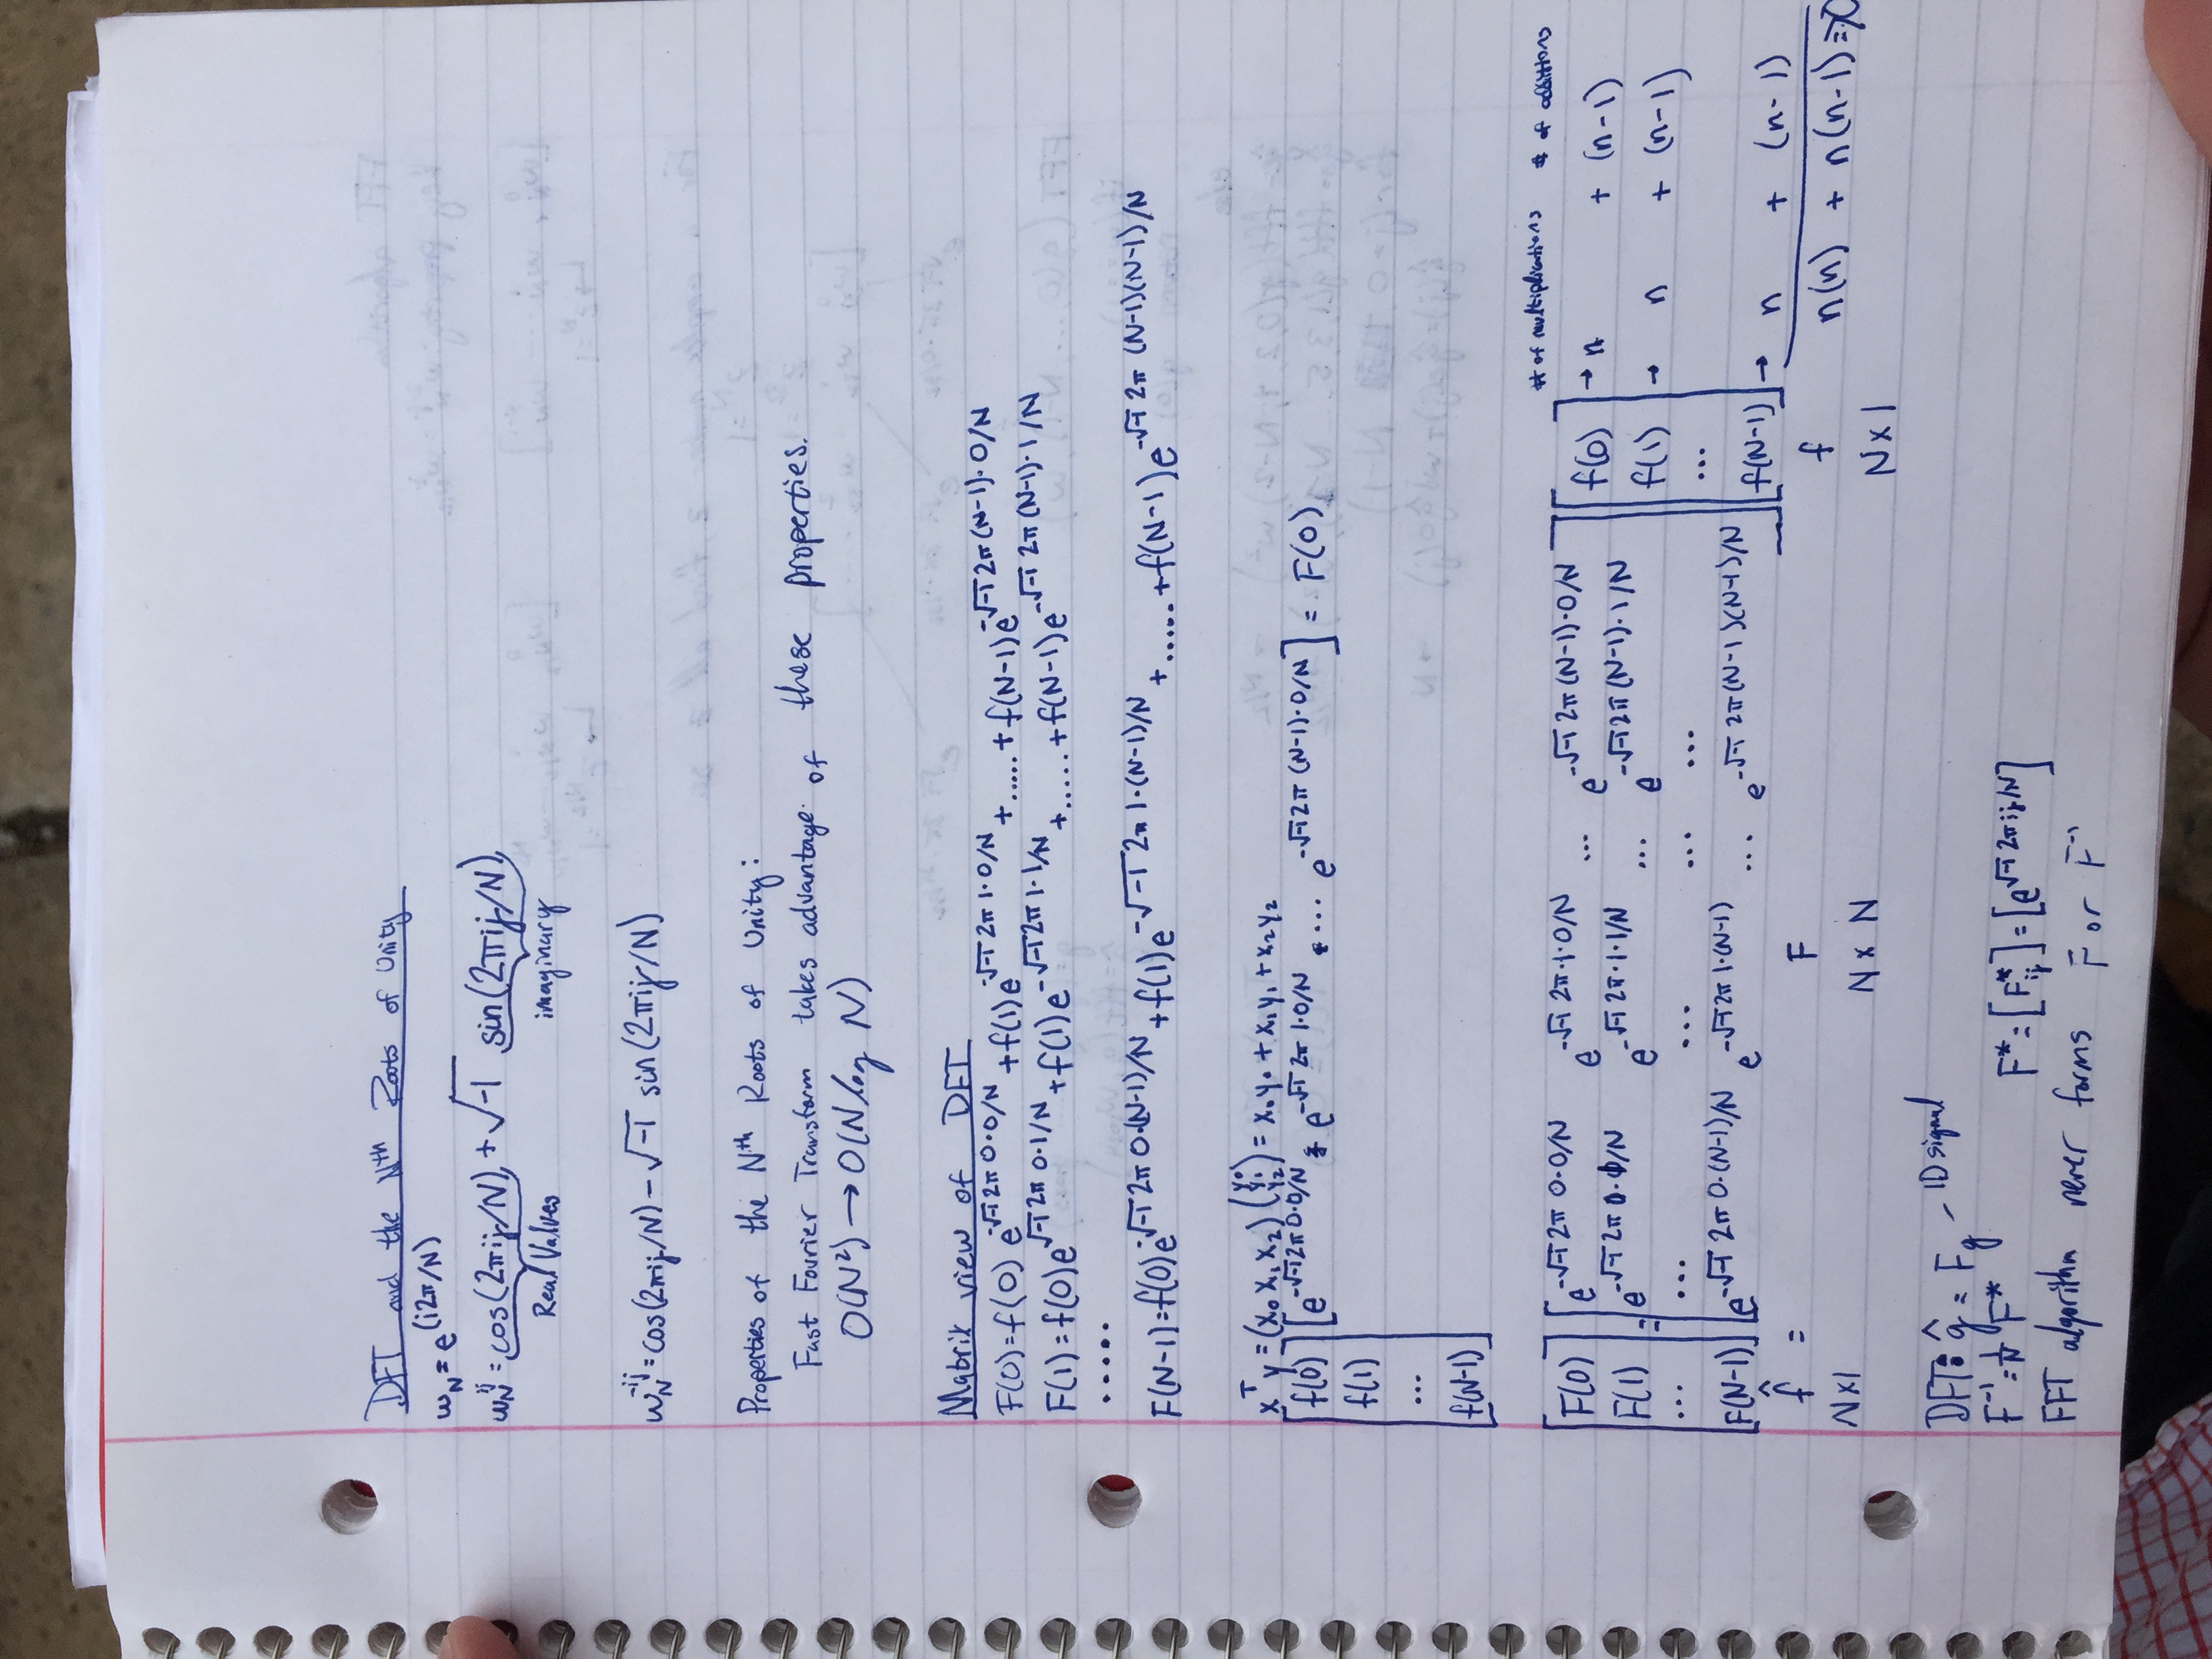 DFT and the Nth Roots of Unity
w_N = e^(i2π/N)
w_N^ij = cos(2πij/N) + √-1 sin(2πij/N)
Real Values imaginary
w_N^-ij = cos(2πij/N) - √-1 sin(2πij/N)
Properties of the Nth Roots of Unity:
Fast Fourier Transform takes advantage of these properties.
O(N²) → O(N log N)
Matrix view of DFT
F(0) = f(0) e^-√-1 2π 0·0/N + f(1) e^-√-1 2π 1·0/N + ..... + f(N-1) e^-√-1 2π (N-1)·0/N
F(1) = f(0) e^√-1 2π 0·1/N + f(1) e^-√-1 2π 1·1/N + ...... + f(N-1) e^-√-1 2π (N-1)·1/N
.....
F(N-1) = f(0) e^-√-1 2π 0·(N-1)/N + f(1) e^-√-1 2π 1·(N-1)/N + ...... + f(N-1) e^-√-1 2π (N-1)(N-1)/N
x^T y = (x₀ x₁ x₂) (y₀ y₁ y₂) = x₀y₀ + x₁y₁ + x₂y₂
[f(0)] [e^-√-1 2π 0·0/N e^-√-1 2π 1·0/N ... e^-√-1 2π (N-1)·0/N] = F(0)
f(1)
...
f(N-1)
# of multiplications # of additions
[F(0)] [e^-√-1 2π 0·0/N e^-√-1 2π·1·0/N ... e^-√-1 2π (N-1)·0/N] [f(0)] → n + (n-1)
F(1) = e^-√-1 2π 0·1/N e^-√-1 2π·1·1/N ... e^-√-1 2π (N-1)·1/N f(1) → n + (n-1)
... ... ... ... ... ...
F(N-1) e^-√-1 2π 0·(N-1)/N e^-√-1 2π 1·(N-1) ... e^-√-1 2π (N-1)(N-1)/N f(N-1) → n + (n-1)
f̂ = F f n(n) + n(n-1) =>
N×1 N × N N × 1
DFT: ĝ = Fg - 1D signal
F^-1 = 1/N F* F* = [F*_ij] = [e^√-1 2πij/N]
FFT algorithm never forms F or F^-1